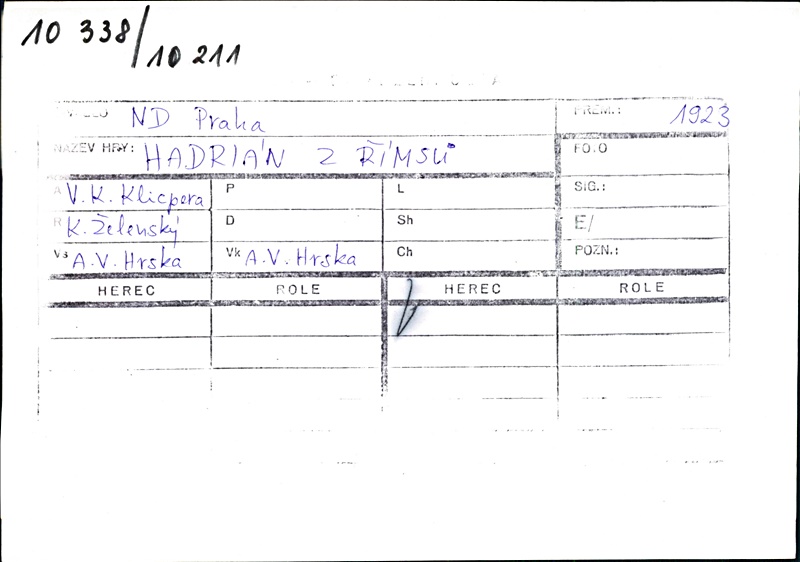 10 338/
10 211
ND Praha PREM.: 1923
NÁZEV HRY: HADRIÁN Z ŘÍMSŮ FO.O
A V. K. Klicpera P L SIG.:
R K. Želenský D Sh E/
Vs A.V. Hrska Vk A.V. Hrska Ch POZN.:
HEREC ROLE HEREC ROLE